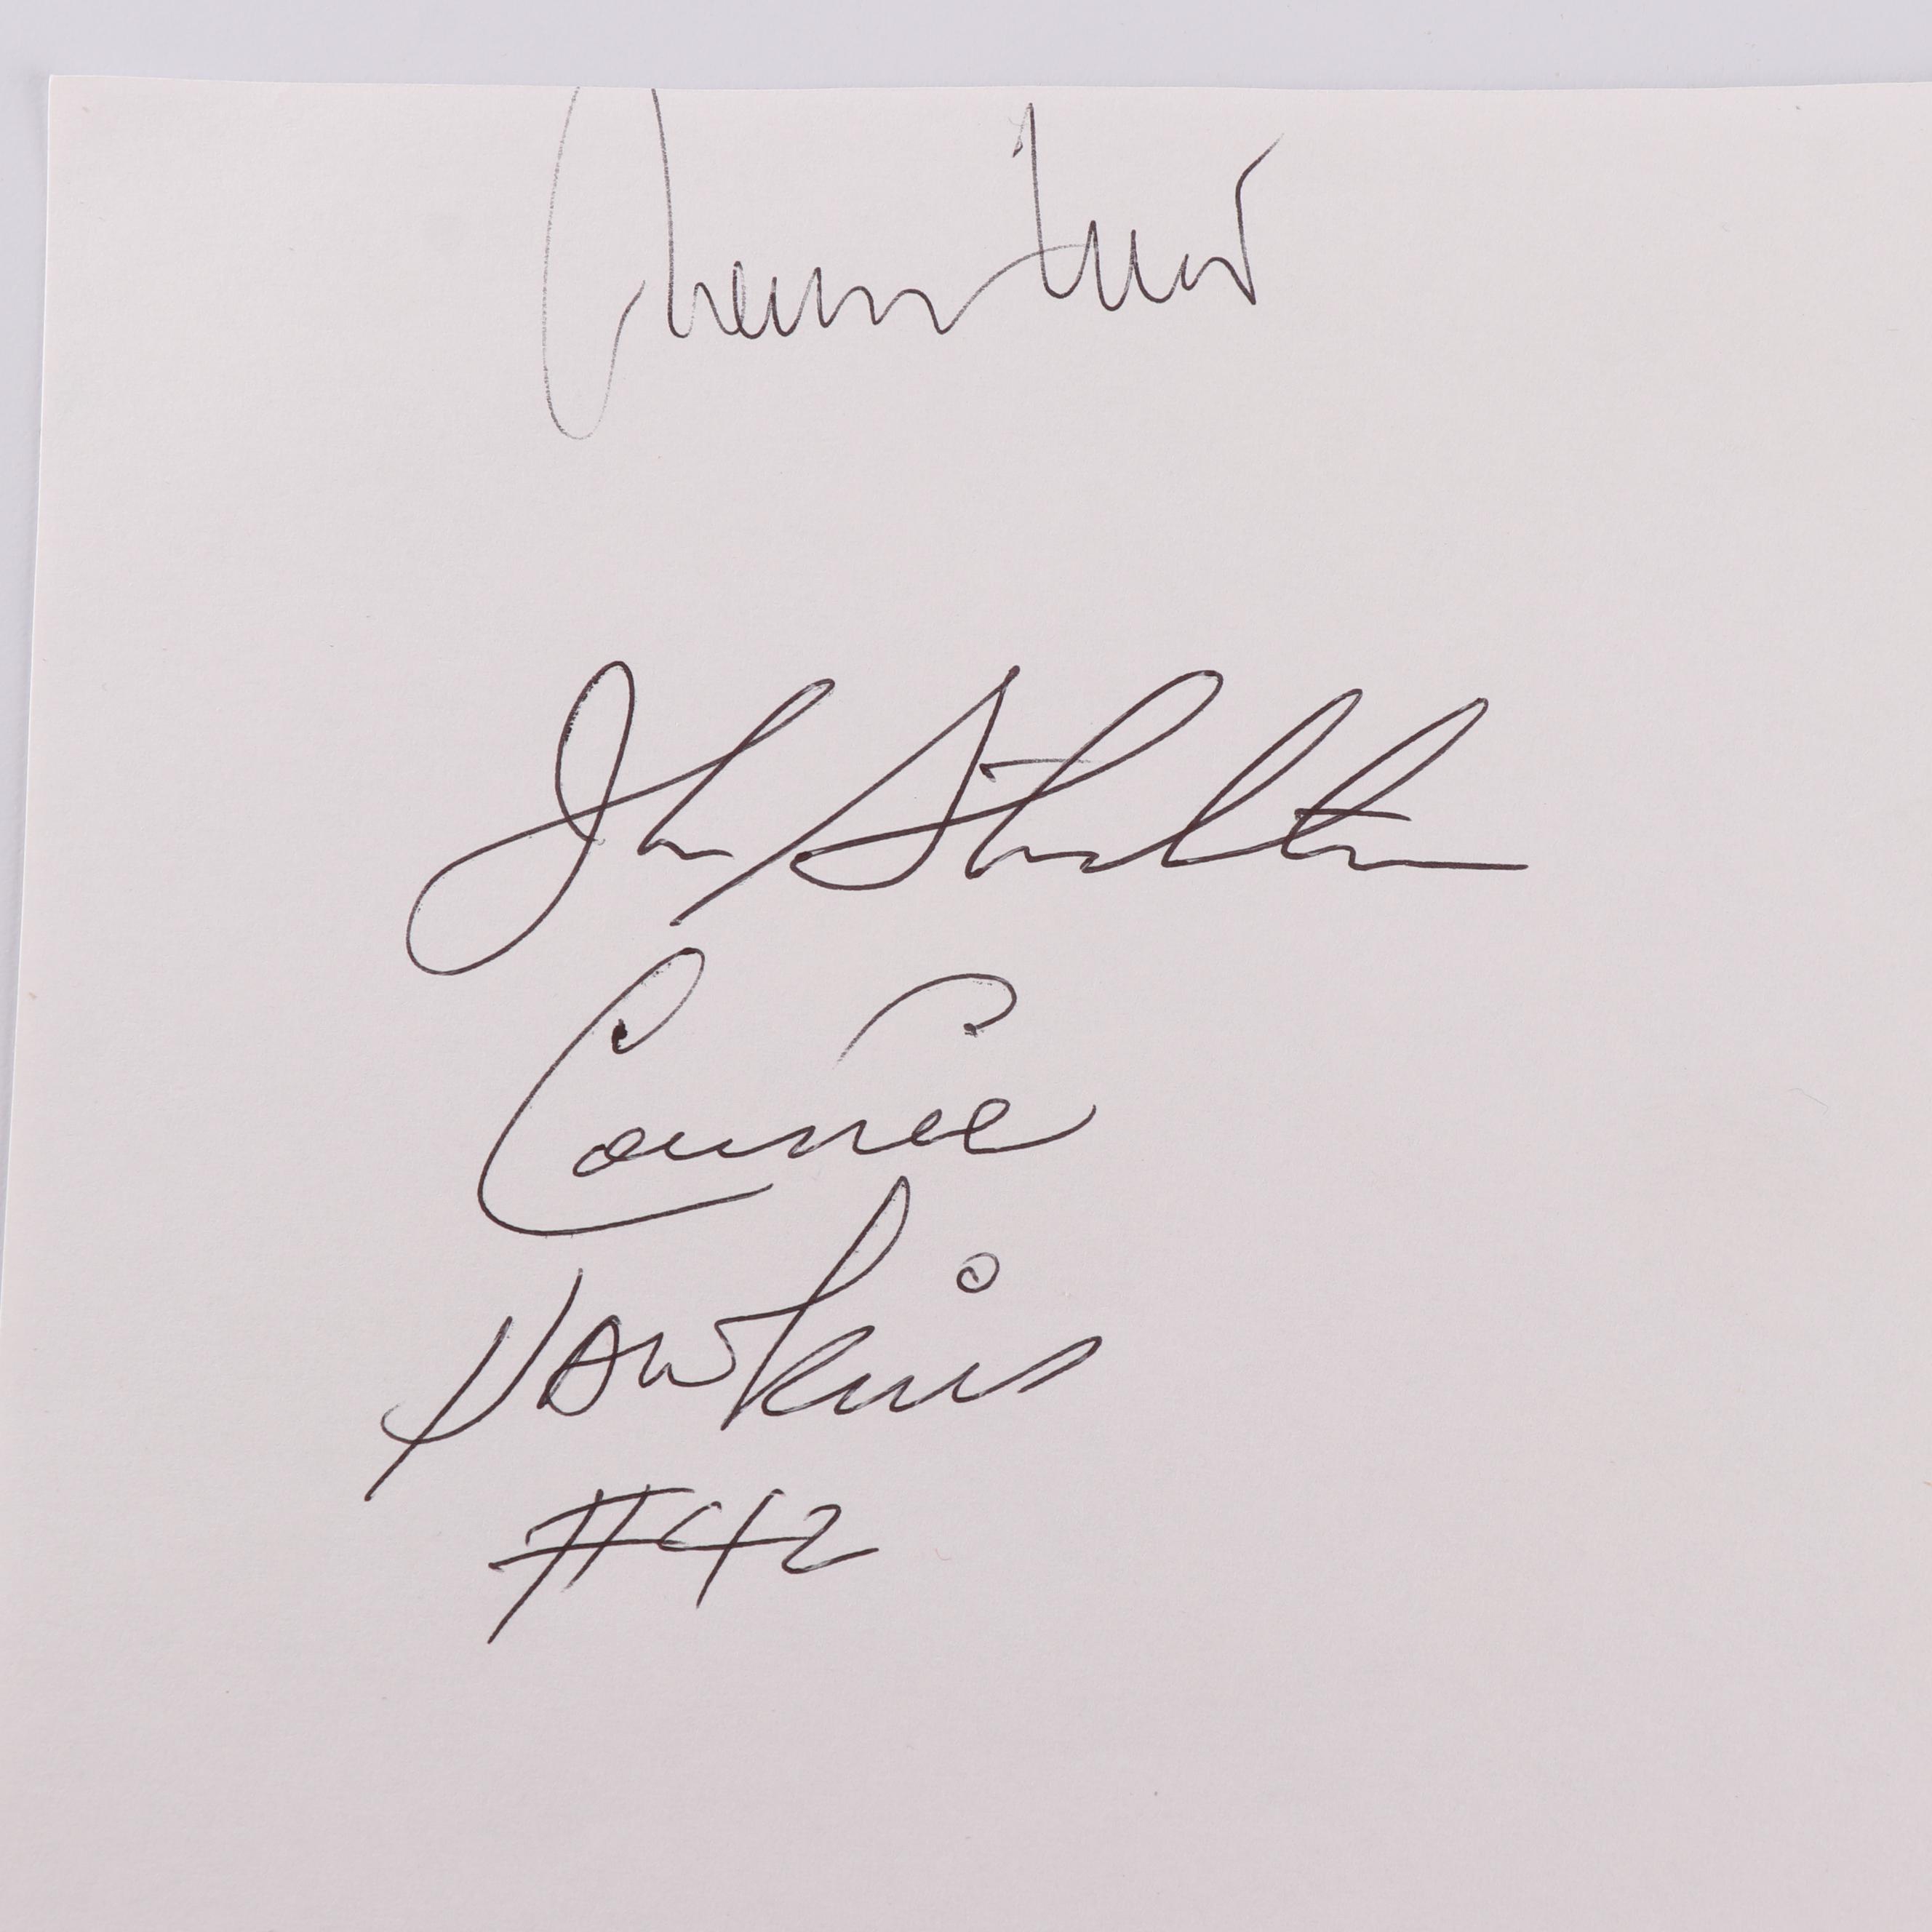 John Stockton
Connie
Hawkins
#42